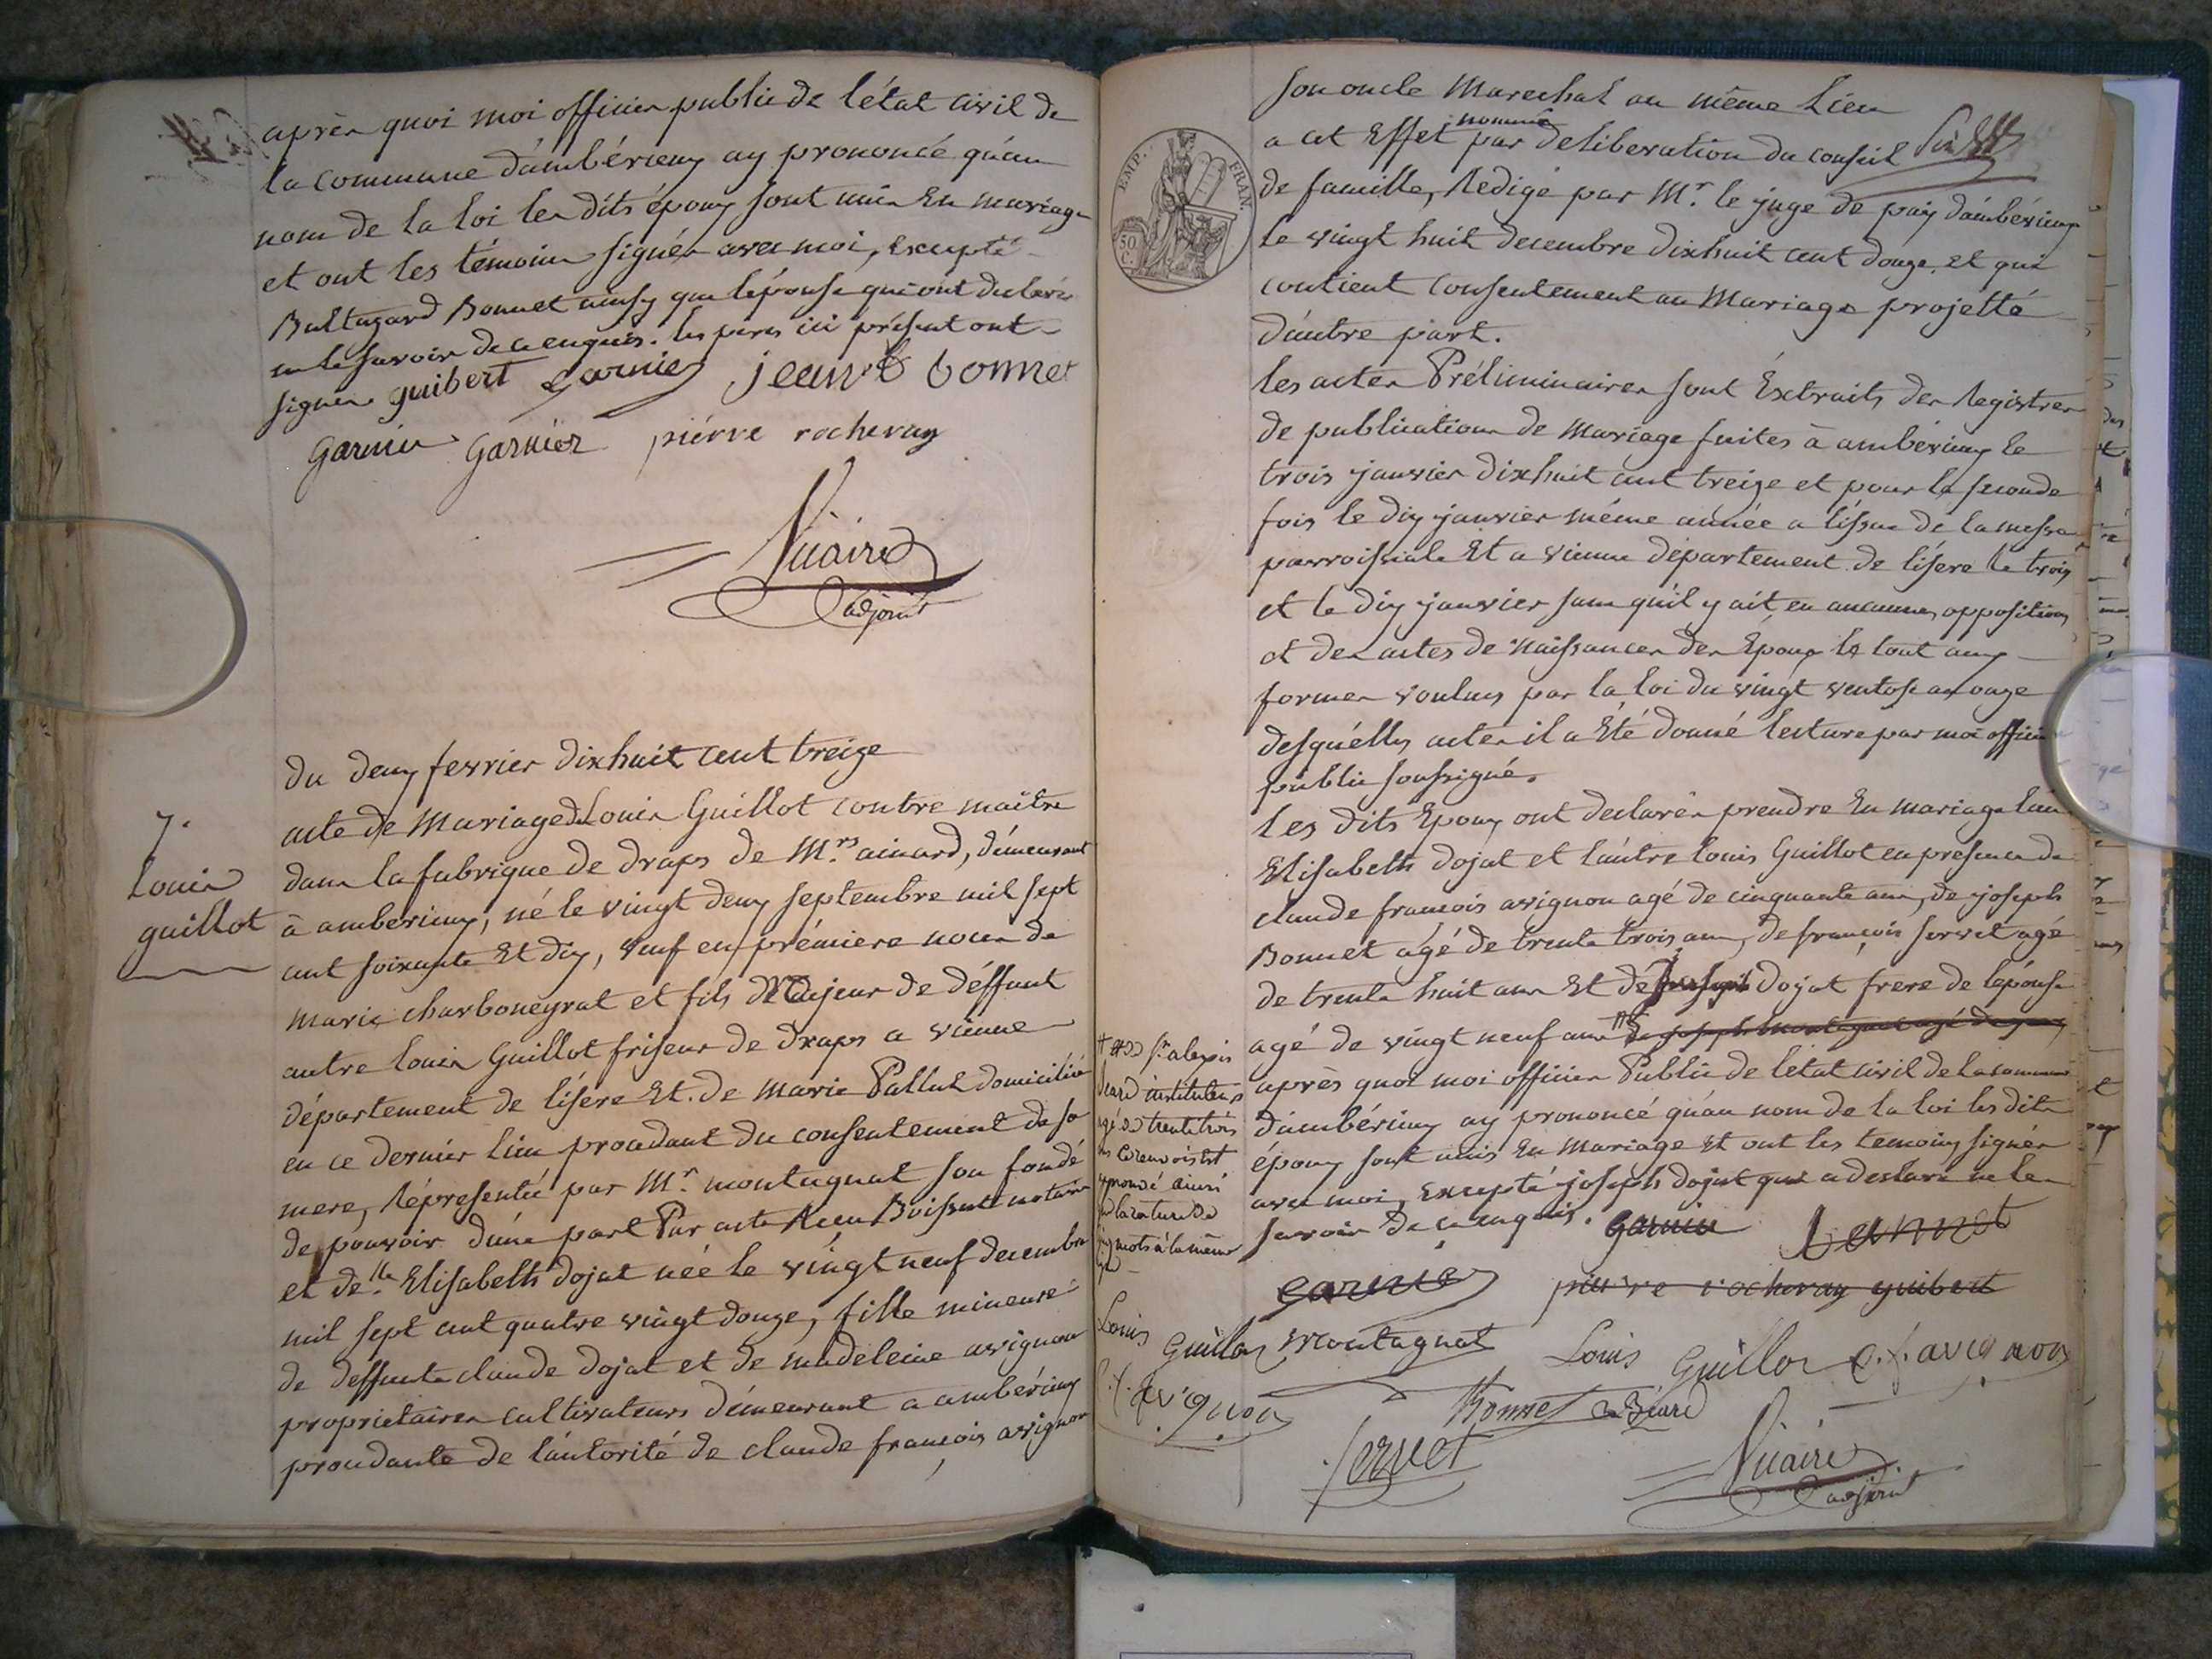 après quoi moi officier public de l'état civil de
la commune d'ambérieux ay prononcé qu'au
nom de la loi les dits époux sont unis En mariage
et ont les témoins signés avec moi, Excepté
Baltazard Bonnet ainsy que l'épouse qui ont declarés
ne le savoir de ce enquis. les peres ici présent ont
signés guibert garnier jean b bonnet
garnier garnier piérre rocheray
Vicaire
adjoint
7.
Louis
guillot
du deux fevrier dixhuit cent treize
acte de Mariage de Louis Guillot contre maitre
dans la fabrique de draps de M.rs ainard, démeurant
à amberieux, né le vingt deux septembre mil sept
cent soixante Et dix, veuf en prémiere noces de
marie charboneyrat et fils Majeur de déffunt
autre Louis Guillot friseur de draps a vienne
département de l'isere Et de marie Pallut domiciliée
en ce dernier lieu procedant du consentement de sa
mere, répresentée par M.r montagnat son fondé
de pouvoir d'une part Par acte Recu Boissat notaire
et de.lle Elisabeth dojat née le vingt neuf decembre
mil sept cent quatre vingt douze, fille mineure
de deffunt claude dojat et de madeleine avignon
proprietaires cultivateurs démeurant a ambérieux
procedante de l'autorité de claude françois avignon
son oncle Marechal au même Lieu
a cet Effet nommé par deliberation du conseil
EMP. FRAN.
50 C.
de famille, redigé par M.r le juge de paix d'ambérieux
le vingt huit decembre dixhuit cent douze, et qui
contient consentement au Mariage projetté
d'autre part.
les actes Préliminaires sont Éxtraits des Registres
de publications de Mariage faites à ambérieux le
trois janvier dixhuit cent treize et pour la seconde
fois le dix janvier même année a l'issue de la messe
parroissiale Et a vienne département de l'isere le trois
et le dix janvier sans qu'il y ait eu aucunes oppositions
et des actes de Naissances des Époux le tout aux
formes voulues par la loi du vingt ventose an onze
desquelles actes il a Été donné lecture par moi officier
public soussigné.
Les dits Epoux ont declarés prendre En mariage l'un
Elisabeth dojat et l'autre louis Guillot en presence de
claude francois avignon agé de cinquante ans, de joseph
Bonnet agé de trente trois ans, de françois servet agé
de trente huit ans Et de joseph dojat frere de l'épouse
agé de vingt neuf ans
après quoi moi officier Public de l'etat civil de la commune
d'ambérieux ay prononcé qu'au nom de la loi les dits
époux sont unis En mariage Et ont les temoins signés
avec moi, Excepté joseph dojat qui a declaré ne le
savoir de ce enquis. garnier bonnet
et de s.r alexis
Béard instituteur
agé de trente trois
ans Ce renvois est
approuvé ainsi
que la rature de
mots à la même
Louis
Guillot
C. f. avignon
garnier pierre rocheray guibert
montagnat Louis Guillot C. f. avignon
Bonnet Béard
servet
Vicaire
adjoint